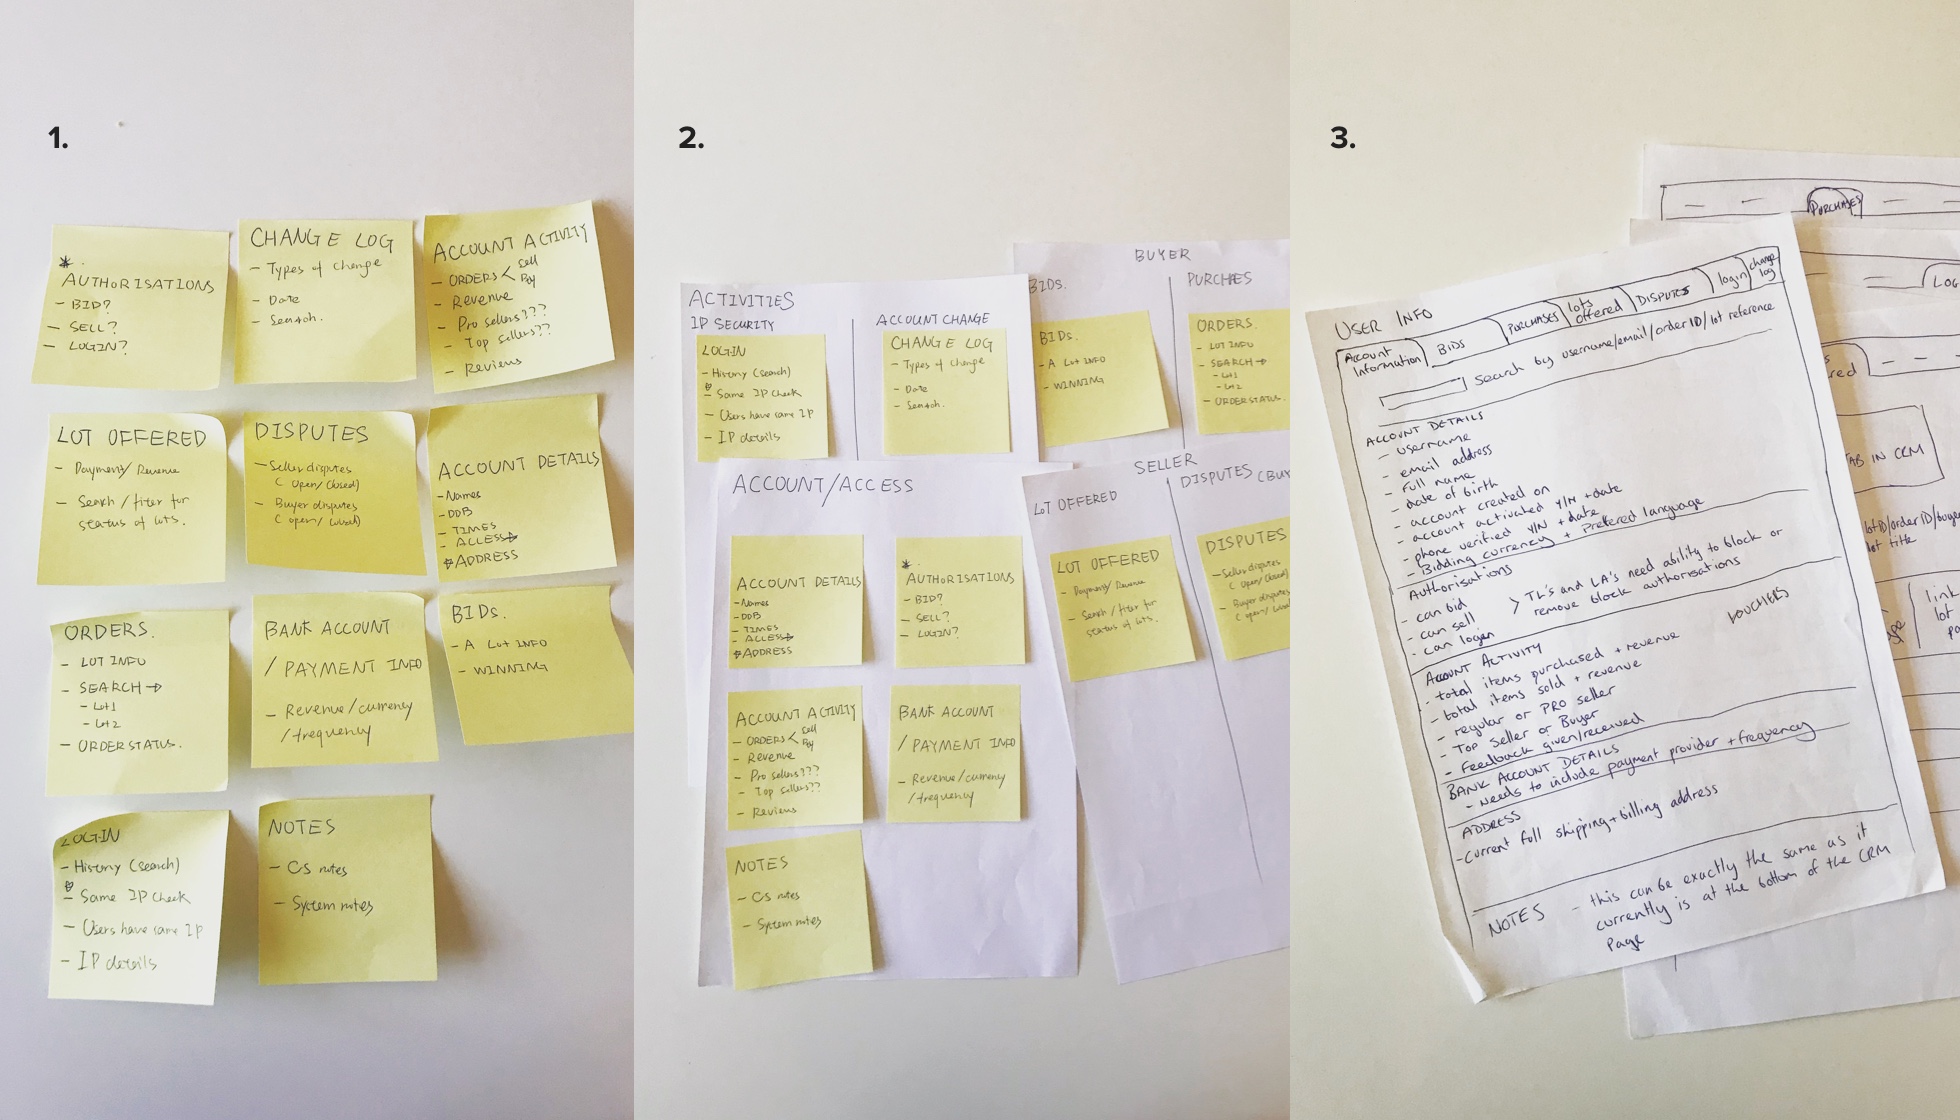 1.
*
AUTHORISATIONS
- BID?
- SELL?
- LOGIN?
CHANGE LOG
- Types of change
- Date
- Search.
ACCOUNT ACTIVITY
- ORDERS < sell
Buy
- Revenue
- Pro sellers???
- Top sellers???
- Reviews
LOT OFFERED
- Payment/ Revenue
- Search / filter for
status of lots.
DISPUTES
- Seller disputes
( open/ closed)
- Buyer disputes
( open/ closed)
ACCOUNT DETAILS
- Names
- DOB
- TIMES
- ACCESS
ADDRESS
ORDERS.
- LOT INFO
- SEARCH →
- Lot1
- Lot2
- ORDER STATUS.
BANK ACCOUNT
/ PAYMENT INFO
- Revenue/currency
/frequency
BIDs.
- A Lot INFO
- WINNING
LOGIN
- History (search)
- Same IP check
- Users have same IP
- IP details
NOTES
- CS notes
- System notes
2.
ACTIVITIES
IP SECURITY
ACCOUNT CHANGE
LOGIN
- History (search)
- Same IP check
- Users have same IP
- IP details
CHANGE LOG
- Types of change
- Date
- Search.
BUYER
BIDS.
PURCHES
BIDs.
- A Lot INFO
- WINNING
ORDERS.
- LOT INFO
- SEARCH →
- Lot1
- Lot2
- ORDER STATUS.
ACCOUNT/ACCESS
ACCOUNT DETAILS
- Names
- DOB
- TIMES
- ACCESS
ADDRESS
*
AUTHORISATIONS
- BID?
- SELL?
- LOGIN?
ACCOUNT ACTIVITY
- ORDERS < sell
Buy
- Revenue
- Pro sellers???
- Top sellers???
- Reviews
BANK ACCOUNT
/ PAYMENT INFO
- Revenue/currency
/frequency
NOTES
- CS notes
- System notes
SELLER
LOT OFFERED
DISPUTES (BUY
LOT OFFERED
- Payment/ Revenue
- Search / filter for
status of lots.
DISPUTES
- Seller disputes
( open/ closed)
- Buyer disputes
( open/ closed)
3.
USER INFO
Account
Information
BIDS
PURCHASES
lots
offered
DISPUTES
login
change
log
Search by username/email/order ID/lot reference
ACCOUNT DETAILS
- username
- email address
- full name
- date of birth
- account created on
- account activated Y/N + date
- phone verified Y/N + date
- Bidding currency + Preferred language
Authorisations
- can bid
- can sell
- can login
> TL's and LA's need ability to block or
remove block authorisations
ACCOUNT ACTIVITY
VOUCHERS
- total items purchased + revenue
- total items sold + revenue
- regular or PRO seller
- Top Seller or Buyer
- Feedback given/received
BANK ACCOUNT DETAILS
- Needs to include payment provider + frequency
ADDRESS
- Current full shipping + billing address
NOTES
- this can be exactly the same as it
currently is at the bottom of the CRM
page
PURCHASES
LOG
red
TAB IN CRM
lot ID/order ID/buye
lot title
link
lot